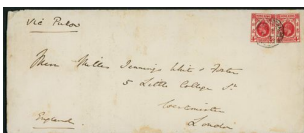 Via
Messrs Miller Jennings White & Foster
5 Little College St
Westminster
London
England